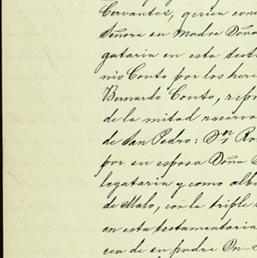 Cervantes, quien con
Señora su Madre Doña
gataria en esta test
nio Couto por los here
Bernardo Couto, refor
de la mitad reserva
de San Pedro: Dn. Ro
por su esposa Doña
legataria y como alba
de Malo, con la triple
en esta testamentaria
cea de su padre Dn